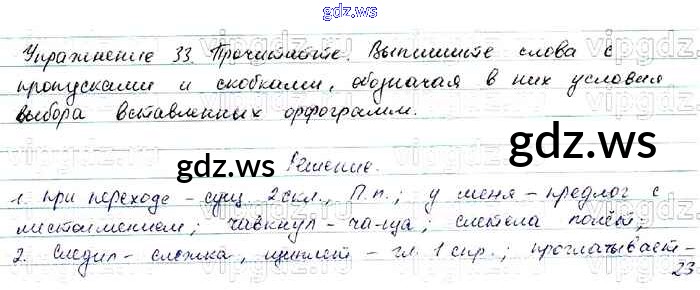 gdz.ws
Упражнение 33. Прочитайте. Выпишите слова с
пропусками и скобками, обозначая в них условия
выбора вставленных орфограмм.
gdz.ws
gdz.ws
Решение.
1. при переходе – сущ. 2 скл., П.п.; у меня – предлог с
местоимением; чавкнул – ча-ща; слетела полёт;
2. следил – слежка, щиплет – гл. 1 спр.; проглатывает –
23